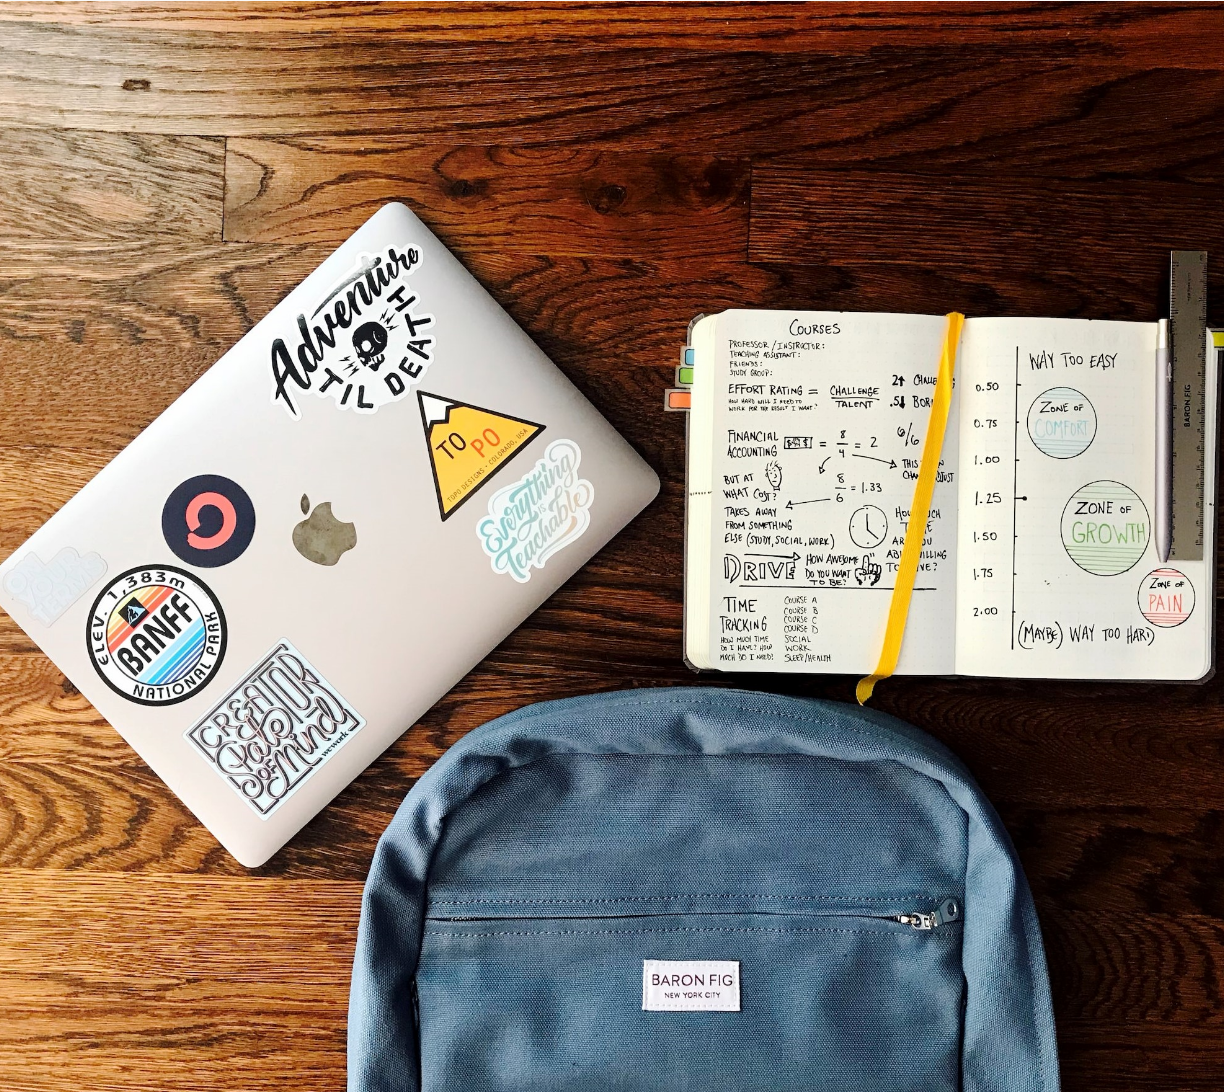 Adventure
TIL DEATH
TO PO
TOPO DESIGNS • COLORADO, USA
Everything
is
Teachable
ELEV. 1,383m
BANFF
NATIONAL PARK
CREATOR
State
OF mind
wework
COURSES
PROFESSOR / INSTRUCTOR:
TEACHING ASSISTANT:
FRIENDS:
STUDY GROUP:
EFFORT RATING = CHALLENGE
TALENT
HOW HARD WILL I NEED TO
WORK FOR THE RESULT I WANT?
2↑
.5↓
6/6
FINANCIAL
ACCOUNTING
$$$ = 8/4 = 2
THIS
BUT AT
WHAT COST?
8/6 = 1.33
TAKES AWAY
FROM SOMETHING
ELSE (STUDY, SOCIAL, WORK)
HOW MUCH
DRIVE
HOW AWESOME
DO YOU WANT
TO BE?
TIME
TRACKING
HOW MUCH TIME
DO I HAVE? HOW
MUCH DO I NEED?
COURSE A
COURSE B
COURSE C
COURSE D
SOCIAL
WORK
SLEEP/HEALTH
WAY TOO EASY
0.50
0.75
1.00
1.25
1.50
1.75
2.00
ZONE OF
COMFORT
ZONE OF
GROWTH
ZONE OF
PAIN
(MAYBE) WAY TOO HARD
BARON FIG
BARON FIG
NEW YORK CITY